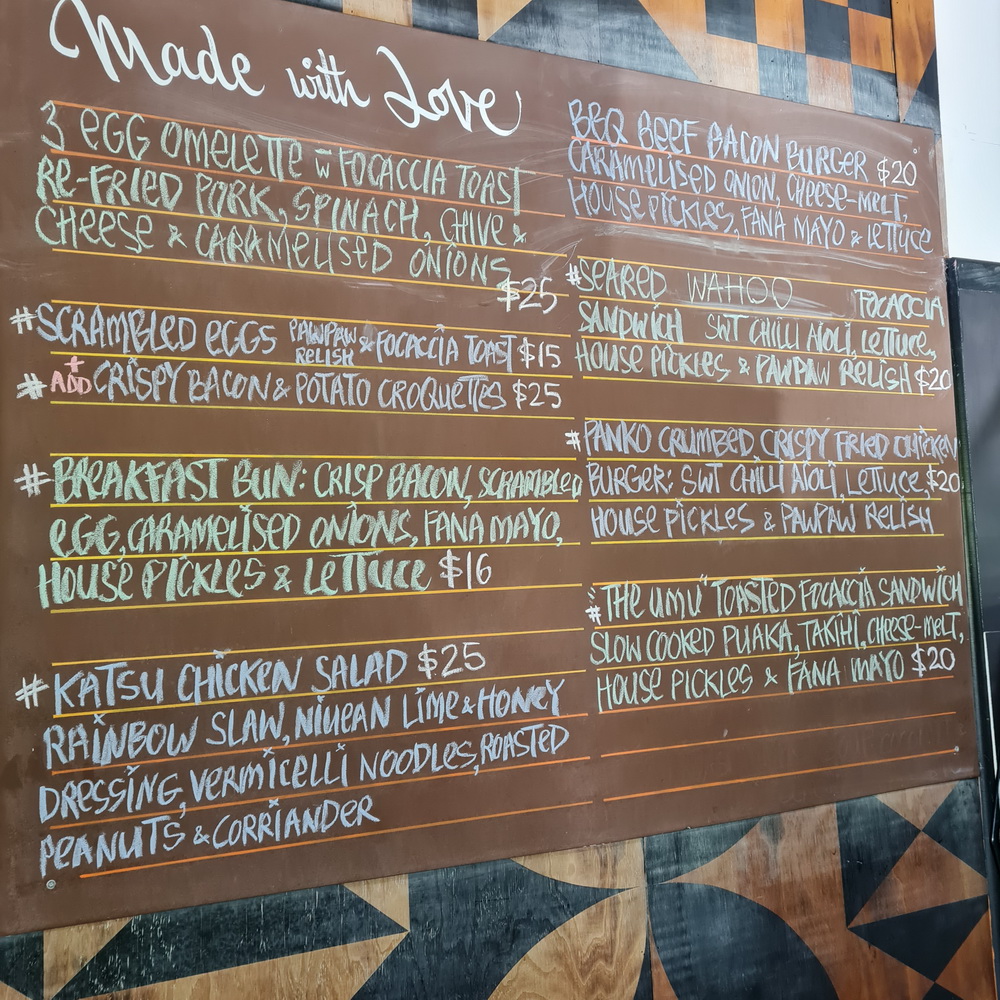 Made with Love
3 EGG OMELETTE w FOCACCIA TOAST
RE-FRIED PORK, SPINACH, CHIVE &
CHEESE & CARAMELISED ONIONS
$25
#SCRAMBLED EGGS PAWPAW RELISH & FOCACCIA TOAST $15
# + ADD CRISPY BACON & POTATO CROQUETTES $25
# BREAKFAST BUN: CRISP BACON, SCRAMBLED
EGG, CARAMELISED ONIONS, FANA MAYO,
HOUSE PICKLES & LETTUCE $16
# KATSU CHICKEN SALAD $25
RAINBOW SLAW, NIUEAN LIME & HONEY
DRESSING, VERMICELLI NOODLES, ROASTED
PEANUTS & CORRIANDER
BBQ BEEF BACON BURGER $20
CARAMELISED ONION, CHEESE-MELT,
HOUSE PICKLES, FANA MAYO & LETTUCE
#SEARED WAHOO FOCACCIA
SANDWICH SWT CHILLI AIOLI, LETTUCE,
HOUSE PICKLES & PAWPAW RELISH $20
#PANKO CRUMBED CRISPY FRIED CHICKEN
BURGER: SWT CHILLI AIOLI, LETTUCE, $20
HOUSE PICKLES & PAWPAW RELISH
# "THE UMU" TOASTED FOCACCIA SANDWICH
SLOW COOKED PUAKA, TAKIHI, CHEESE-MELT,
HOUSE PICKLES & FANA MAYO $20